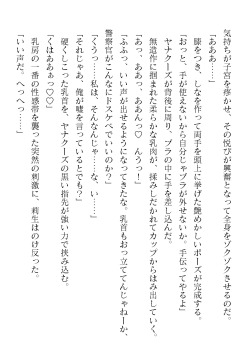 気持ちが子宮を疼かせ、その悦びが興奮となって全身をゾクゾクさせるのだ。
「あああ……」
膝をつき、しなを作って両手を頭上に挙げた艶めかしいポーズが完成する。
「おっと、手が使えないから自分じゃブラが外せないか。手伝ってやるよ」
ヤナクーズが背後に廻り、ブラの中に手を差し込んだ。
無造作に掴まれた柔らかな乳肉が、揉みしだかれてカップからはみ出していく。
「あっ、あああっ、ああんっ♡　んうっ！」
「ふふっ、いい声が出せるようになってきたな、乳首もおっ立ててんじゃねーか、
警察官がこんなにドスケベでいいのか？」
「くうっ……私は、そんなんじゃ……な、い……」
「それじゃあ、俺が嘘を言っているとでも？」
「くはああぁっ♡♡」
硬くしこった乳首を、ヤナクーズの黒い指先が強い力で挟み込む。
乳房の一番の性感帯を襲った突然の刺激に、莉生はのけ反った。
「いい声だ。へっへっへっ……」